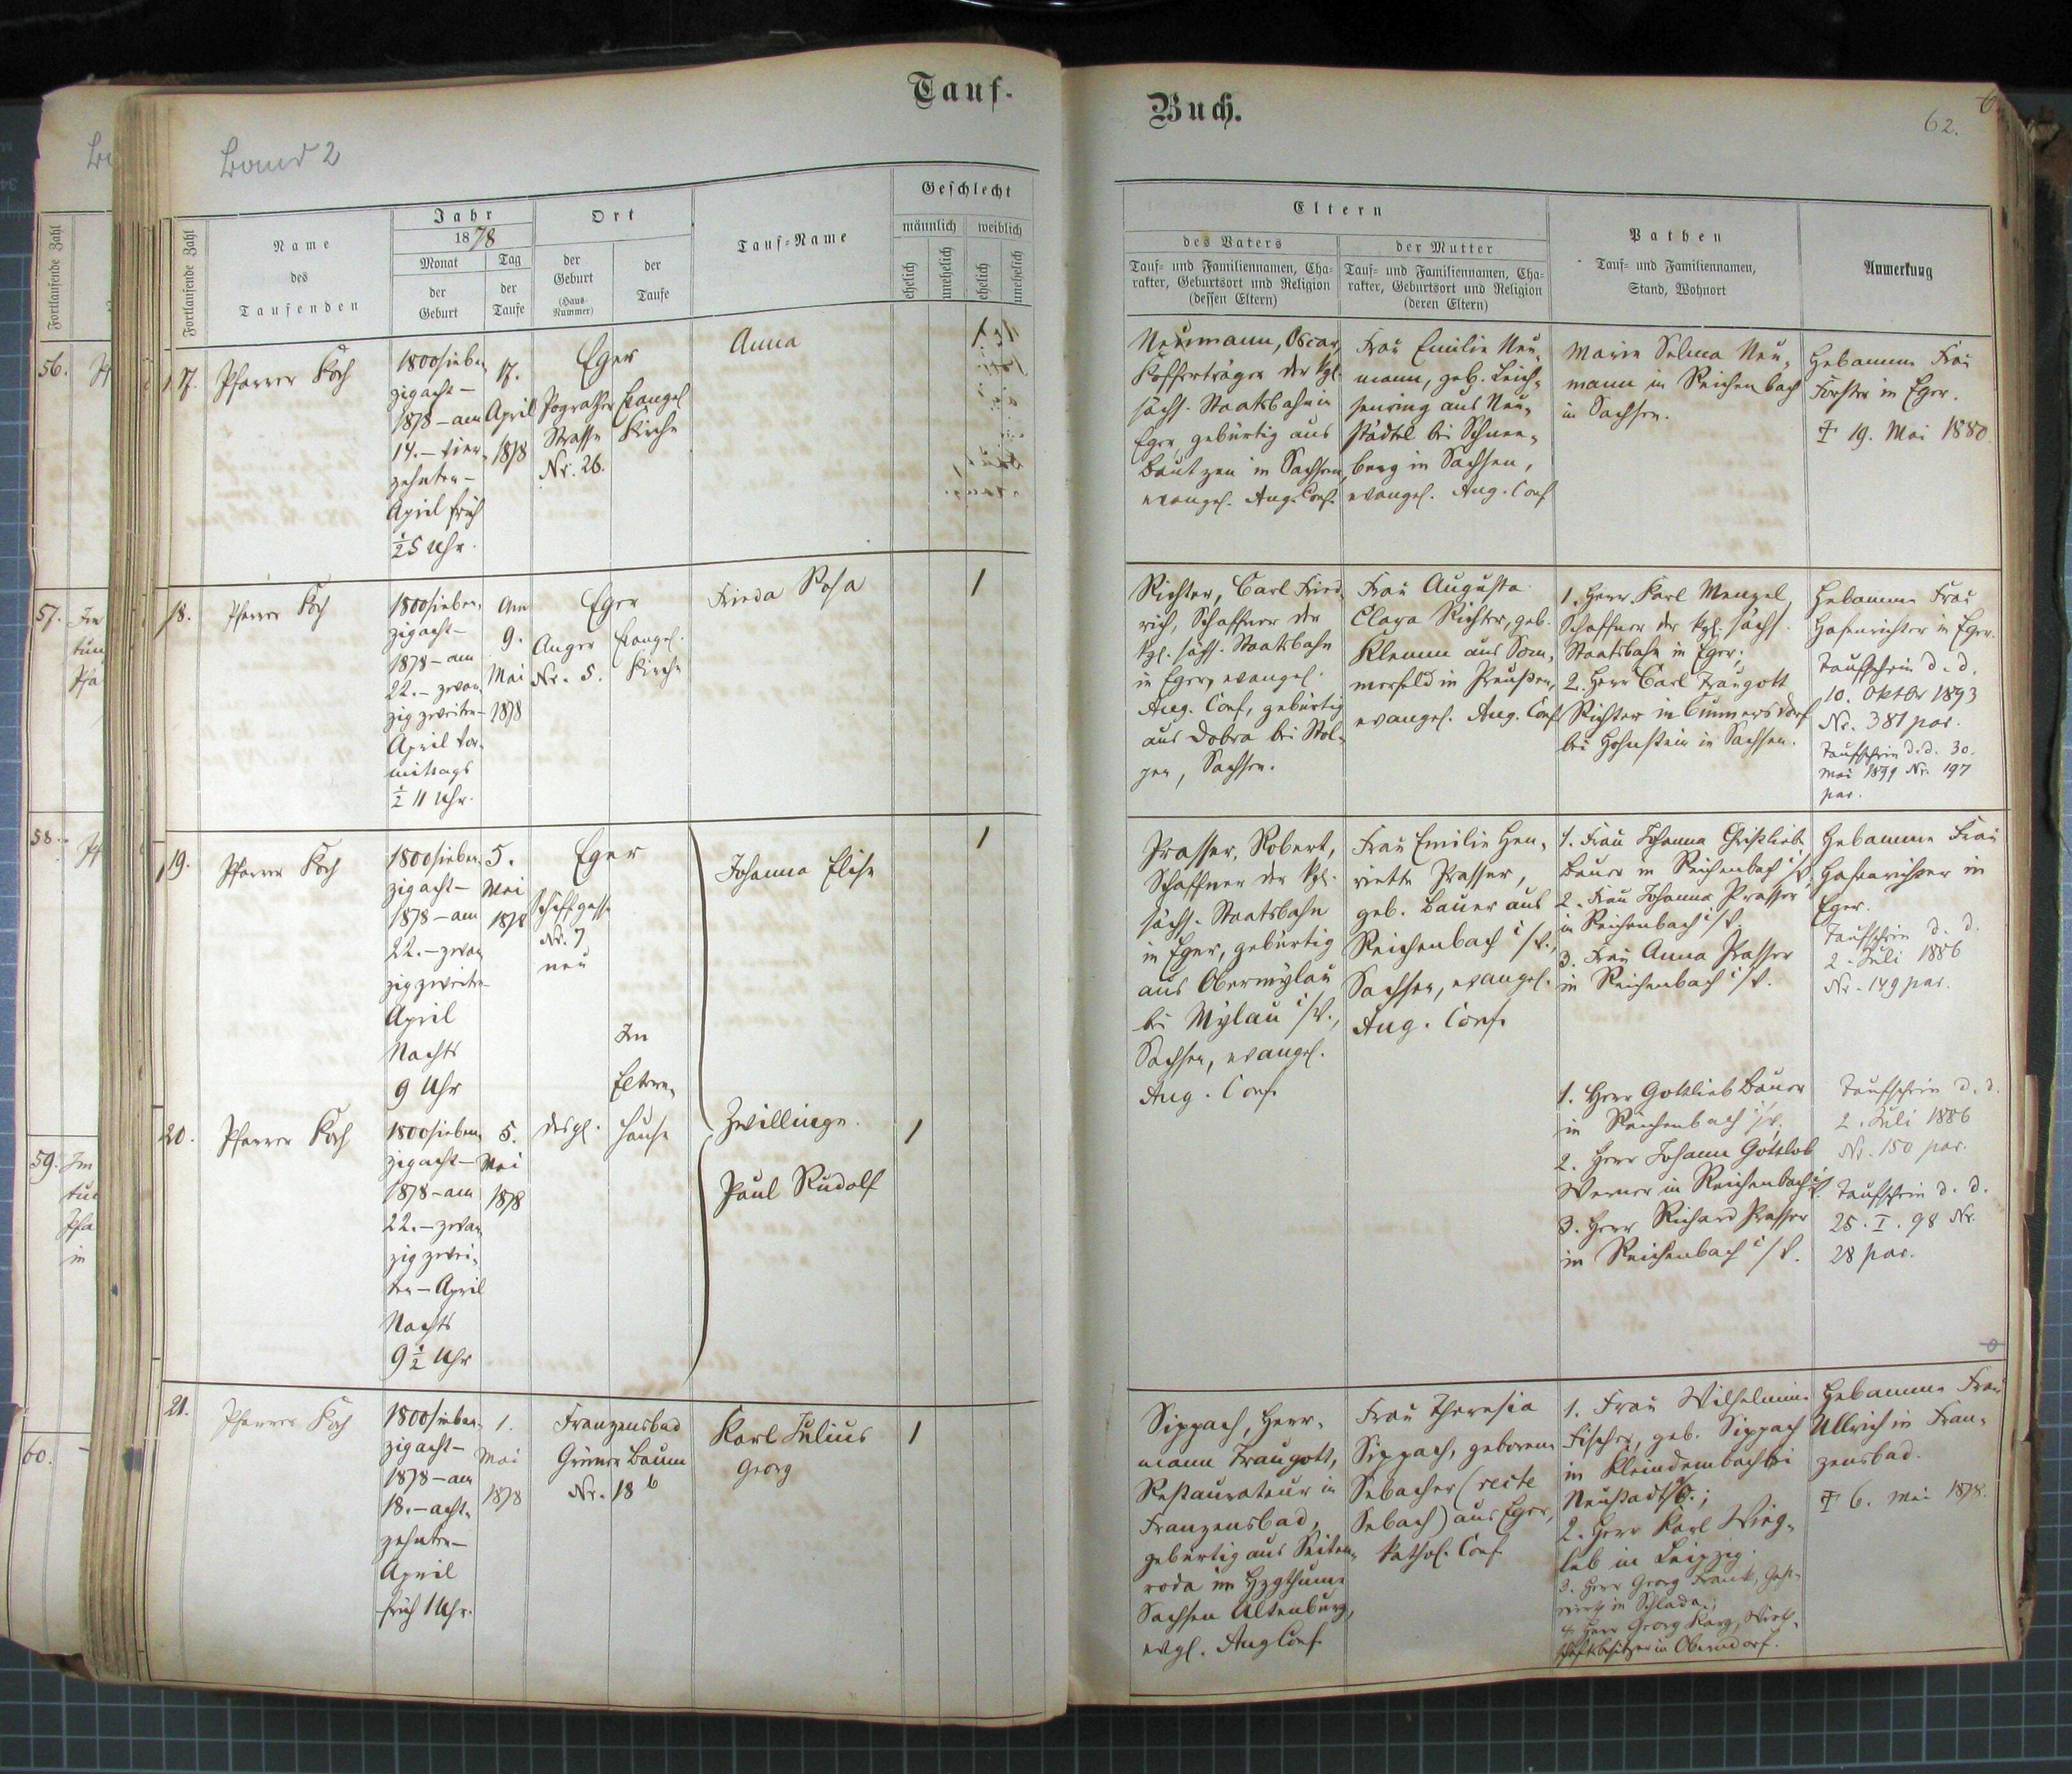 Tauf-
Band 2
Fortlaufende Zahl
Name
des
Taufenden
Jahr
1878
Monat
der
Geburt
Tag
der
Taufe
Ort
der
Geburt
(Haus-
Nummer)
der
Taufe
Tauf-Name
Geschlecht
männlich
weiblich
ehelich
unehelich
ehelich
unehelich
17.
Pfarrer Koch
1800sieben-
zigacht-
1878 – am
14. – vier-
zehnten –
April früh
½5 Uhr.
17.
April
1878
Eger
Pograther
Strasse
Nr. 26.
Evangel
Kirche
Anna
1
18.
Pfarrer Koch
1800sieben-
zigacht-
1878 – am
22. – zwan-
zig zweiten –
April vor-
mittags
½ 11 Uhr.
Am
9.
Mai
1878
Eger
Anger
Nr. 5.
Evangel.
Kirche
Frieda Rosa
1
19.
Pfarrer Koch
1800sieben-
zigacht-
1878 – am
22. – zwan
zigzweiten-
April
Nachts
9 Uhr
5.
Mai
1878
Eger
Schiffgasse
Nr. 7
neu
Im
Eltern-
hause
Johanna Elise
1
Zwillinge.
20.
Pfarrer Koch
1800sieben-
zigacht-
1878 – am
22. – zwan
zig zwei-
ten – April
Nachts
9½ Uhr
5.
Mai
1878
desgl.
Paul Rudolf
1
21.
Pfarrer Koch
1800sieben-
zigacht-
1878 – am
18. – acht-
zehnten –
April
früh 1 Uhr.
1.
Mai
1878
Franzensbad
Grüner Baum
Nr. 18 b
Karl Julius
Georg
1
Fortlaufende Zahl
56.
57.
58.
59.
60.
Buch.
62.
Eltern
des Vaters
Tauf- und Familiennamen, Cha-
rakter, Geburtsort und Religion
(dessen Eltern)
der Mutter
Tauf- und Familiennamen, Cha-
rakter, Geburtsort und Religion
(deren Eltern)
Pathen
Tauf- und Familiennamen,
Stand, Wohnort
Anmerkung
Neumann, Oscar,
Kofferträger der kgl.
sächs. Staatsbahn in
Eger, gebürtig aus
Bautzen in Sachsen,
evangel. Aug. Conf.
Frau Emilie Neu-
mann, geb. Leich-
senring aus Neu-
städtel bei Schnee-
berg in Sachsen,
evangel. Aug. Conf
Marie Selma Neu-
mann in Reichenbach
in Sachsen.
Hebamme Frau
Forster in Eger.
† 19. Mai 1880.
Richter, Carl Fried-
rich, Schaffner der
kgl. sächs. Staatsbahn
in Eger, evangel.
Aug. Conf., gebürtig
aus Dobra bei Stol-
pen, Sachsen.
Frau Augusta
Clara Richter, geb.
Klemm aus Som-
merfeld in Preußen,
evangel. Aug. Conf
1. Herr Karl Menzel
Schaffner der kgl. sächs.
Staatsbahn in Eger;
2. Herr Carl Traugott
Richter in Cunnersdorf
bei Hohnstein in Sachsen.
Hebamme Frau
Hasenrichter in Eger.
Taufschein d. d.
10. Oktbr 1893
Nr. 381 par.
Taufschein d. d. 30.
Mai 1899 Nr. 197
par.
Prasser, Robert,
Schaffner der kgl.
sächs. Staatsbahn
in Eger, gebürtig
aus Obermylau
bei Mylau i/V.,
Sachsen, evangel.
Aug. Conf.
Frau Emilie Hen-
riette Prasser,
geb. Bauer aus
Reichenbach i/V.,
Sachsen, evangel.
Aug. Conf.
1. Frau Johanna Christliebe
Bauer in Reichenbach i/V.
2. Frau Johanna Prasser
in Reichenbach i/V.
3. Frau Anna Prasser
in Reichenbach i/V.
Hebamme Frau
Hasenrichter in
Eger.
Taufschein d. d.
2. Juli 1886
Nr. 149 par.
1. Herr Gottlieb Bauer
in Reichenbach i/V.
2. Herr Johann Gottlob
Werner in Reichenbach i/V.
3. Herr Richard Prasser
in Reichenbach i/V.
Taufschein d. d.
2. Juli 1886
Nr. 150 par.
Taufschein d. d.
25. I. 98 Nr.
28 par.
Sippach, Herr-
mann Traugott,
Restaurateur in
Franzensbad,
gebürtig aus Seiten-
roda im Hzgthume
Sachsen Altenburg,
evgl. Aug Conf.
Frau Theresia
Sippach, geborene
Sebacher (recte
Sebach) aus Eger,
kathol. Conf.
1. Frau Wilhelmine
Fischer, geb. Sippach
in Kleindembach bei
Neustadt a/O.;
2. Herr Karl Wieg-
leb in Leipzig.
3. Herr Georg Frank, Gast-
wirth in Schlada;
4. Herr Georg Karg, Wirth-
schaftsbesitzer in Oberndorf.
Hebamme Frau
Ullrich in Fran-
zensbad.
† 6. Mai 1878.